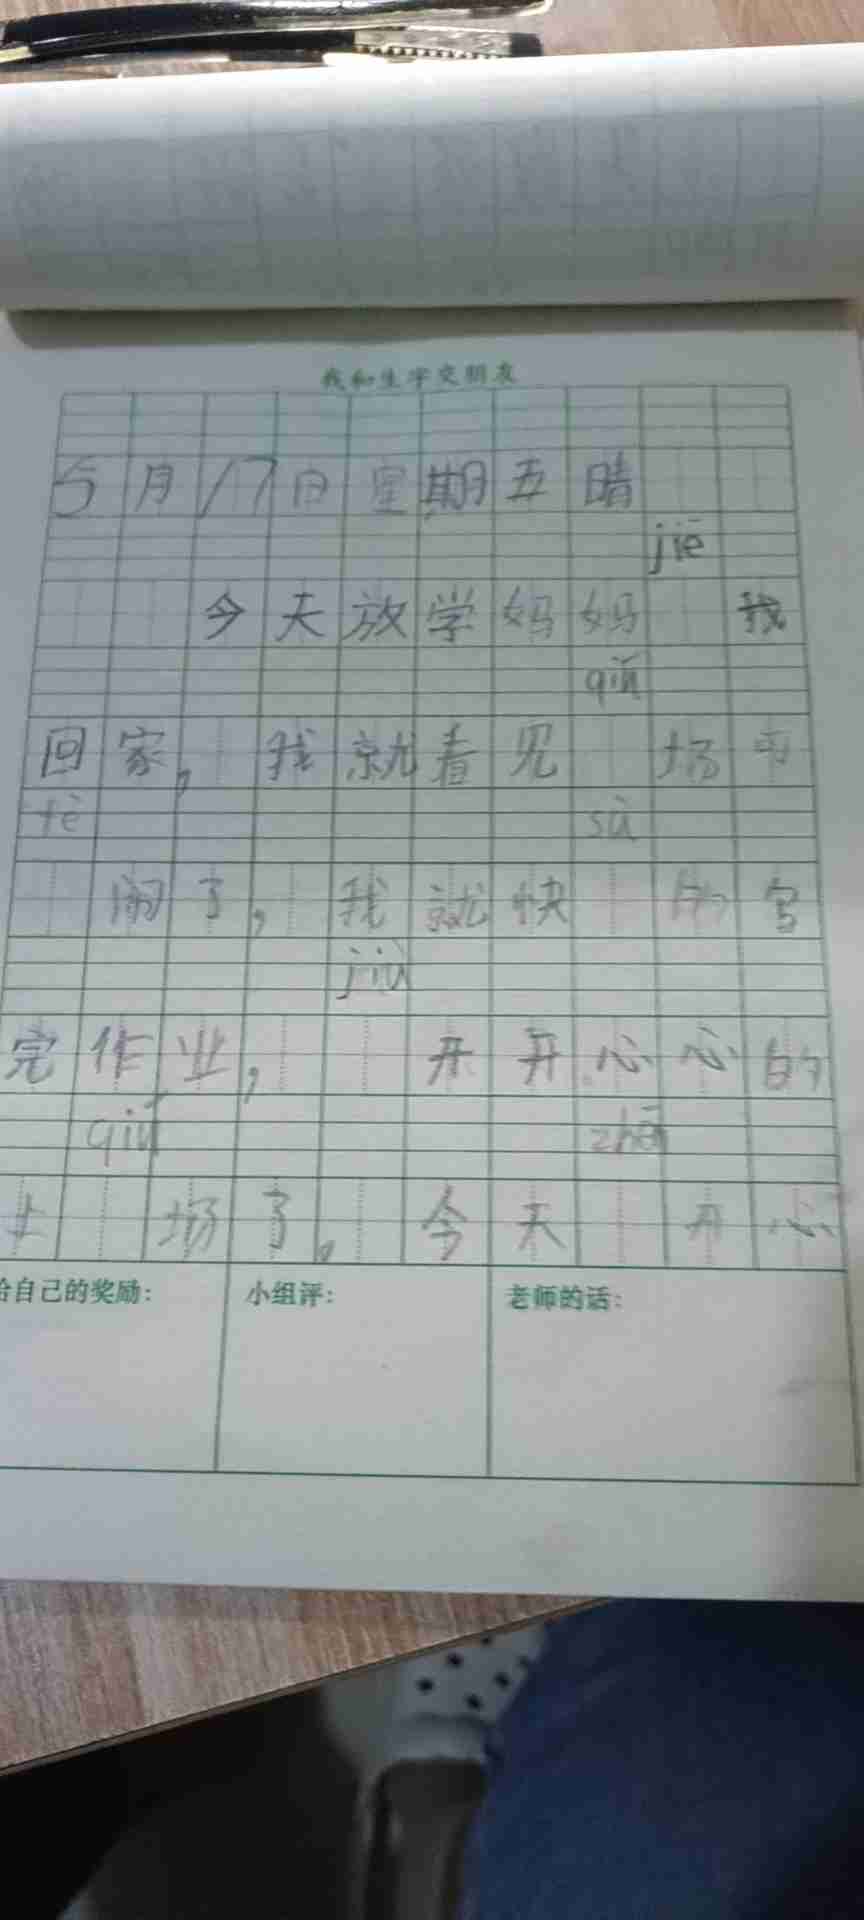 我和生字交朋友
5月17日星期五晴
jiē
今天放学妈妈 我
qiú
回家，我就看见 场可
tè sù
闹了，我就快 的写
jiù
完作业， 开开心心的
qiú zhēn
上 场了，今天 开心
给自己的奖励： 小组评： 老师的话：